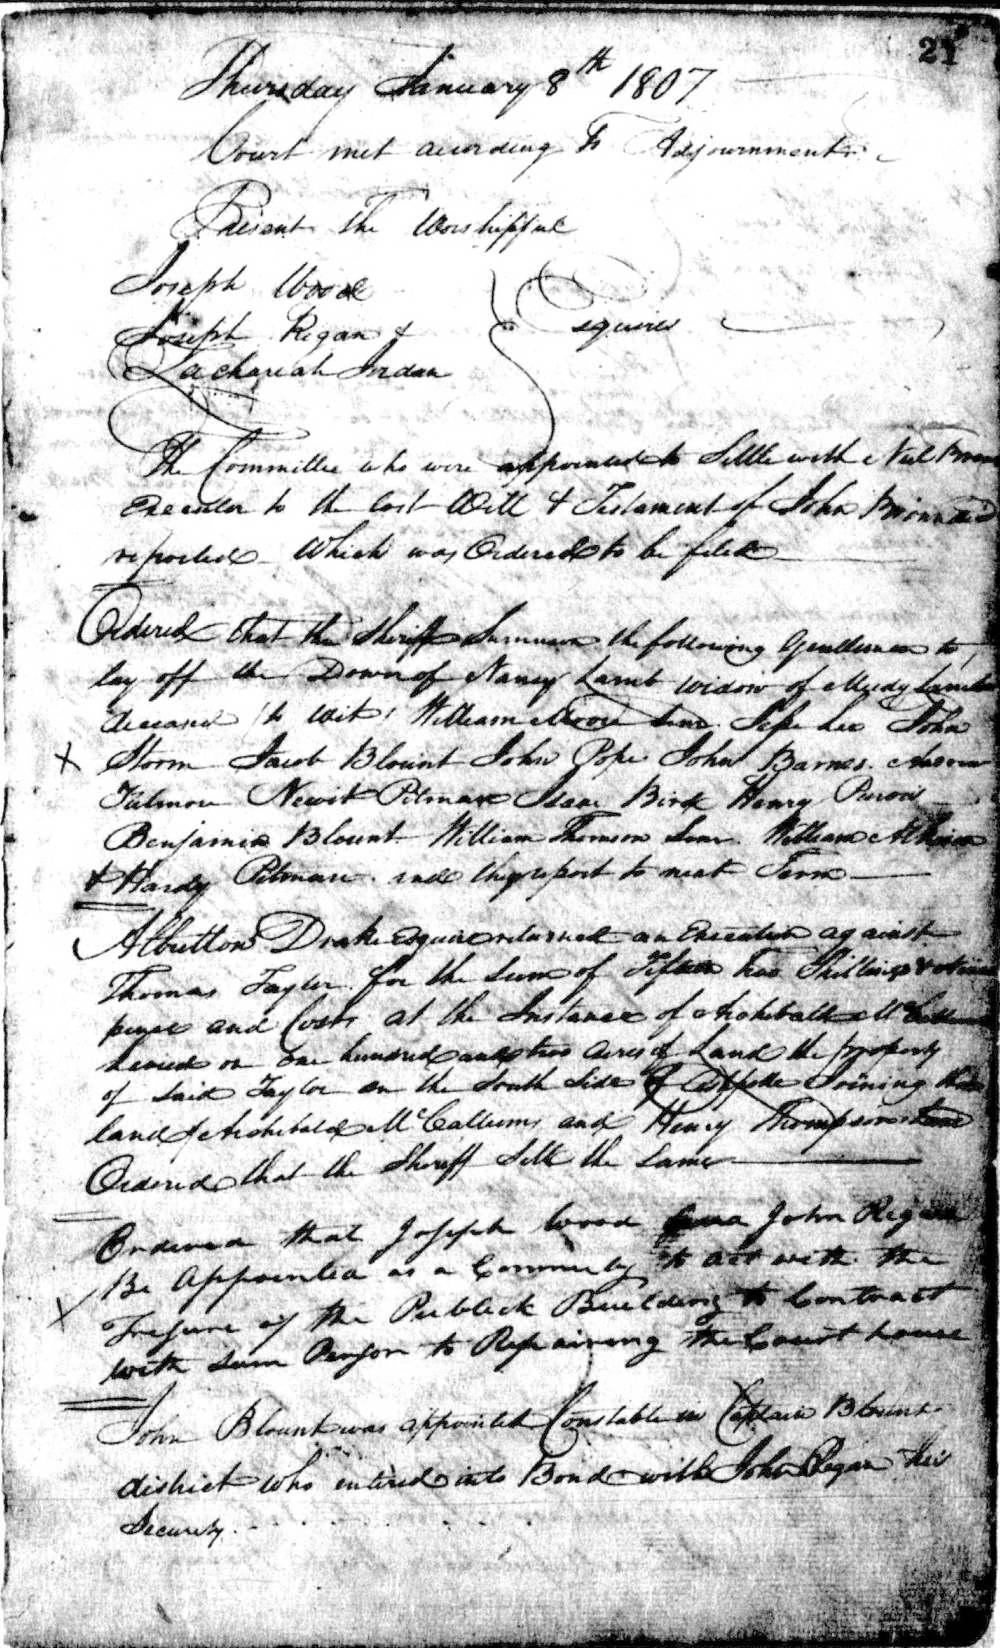 21
Thursday January 8th 1807
Court met according to Adjournment
Present the Worshipful
Joseph Wood
Joseph Regan &
Esquires
Zachariah Jordan
The Committee who were appointed to Settle with Neil
Executor to the last Will & Testament of John
reported which was Ordered to be filed
Ordered that the Sheriff Summon the following Gentlemen to
lay off the Dower of Nancy Lamb widow of Meedy Lamb
deceased (to wit) William Moore Senr. John
X Storm Jacob Blount John Pope John Barnes
Newit Pitman Isaac Bird Henry
Benjamin Blount William Thomson Senr. William
& Hardy Pitman and they report to next Term
Albutton Drake Esquire returned an Execution against
Thomas Taylor for the Sum of two Shillings &
pence and Costs at the Instance of Archibald
Levied on one hundred and two acres of Land the property
of said Taylor on the South Side of Joining the
land of Archibald McCallums and Henry Thompsons
Ordered that the Sheriff Sell the Same
Ordered that Joseph Wood John Regan
Be Appointed as a to act with the
X of the Publick Building to Contract
with sum Person to Repairing the Court house
John Blount was appointed Constable in Captain Blount
district who entered into Bond with John Regan his
Security